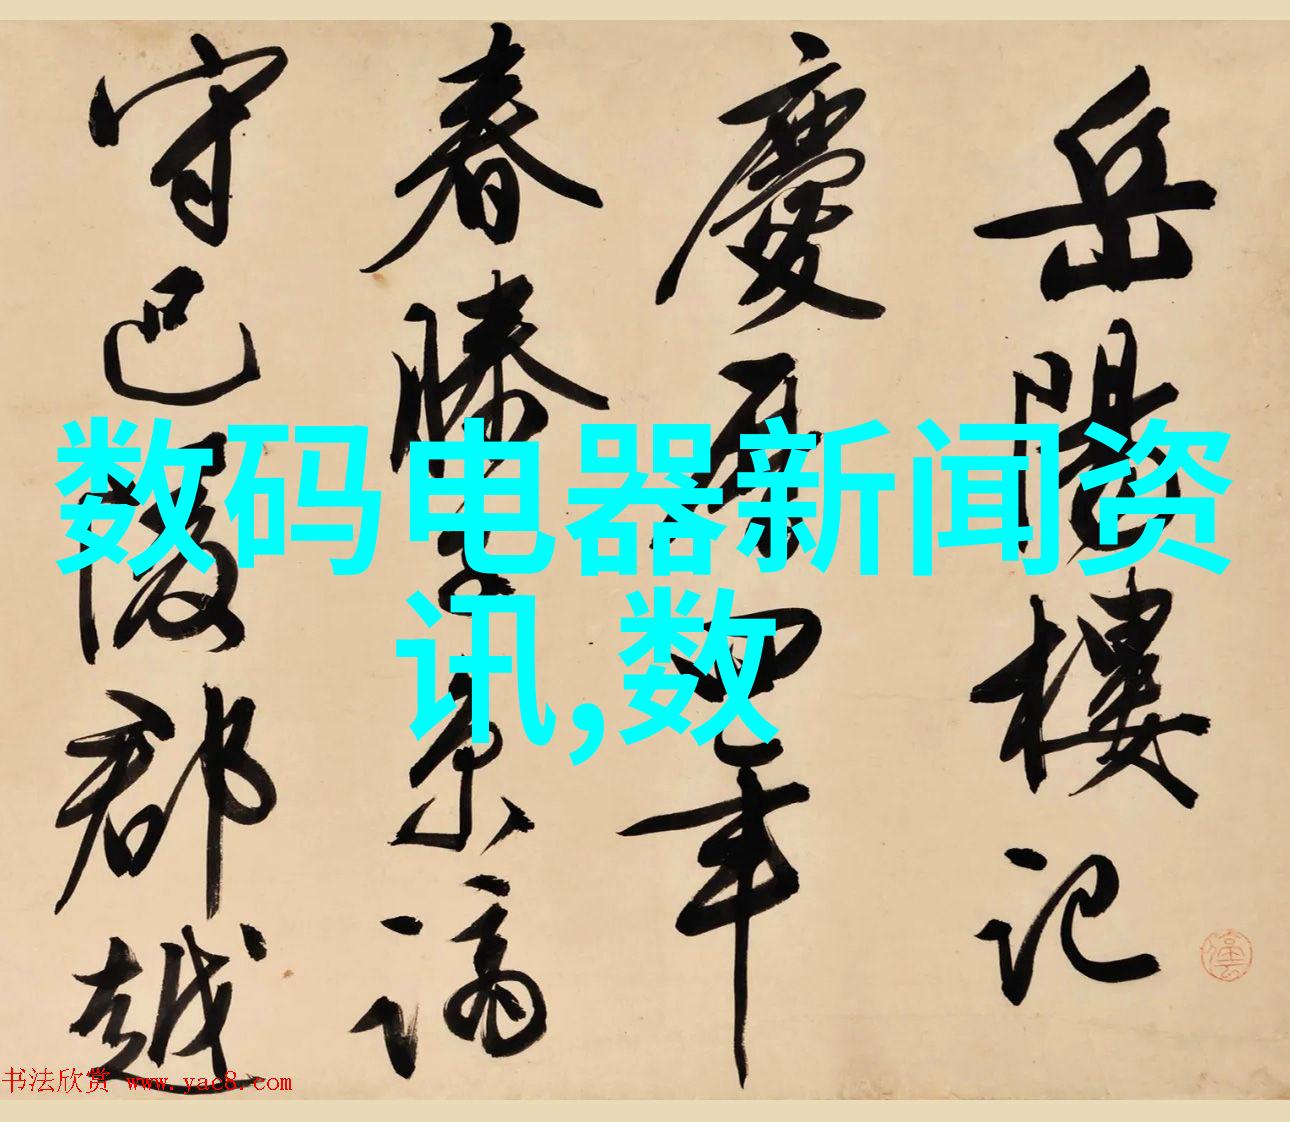 岳陽樓記
慶曆四年
春滕子京謫
守巴陵郡越
数码电器新闻资
讯,数
书法欣赏 www.yac8.com